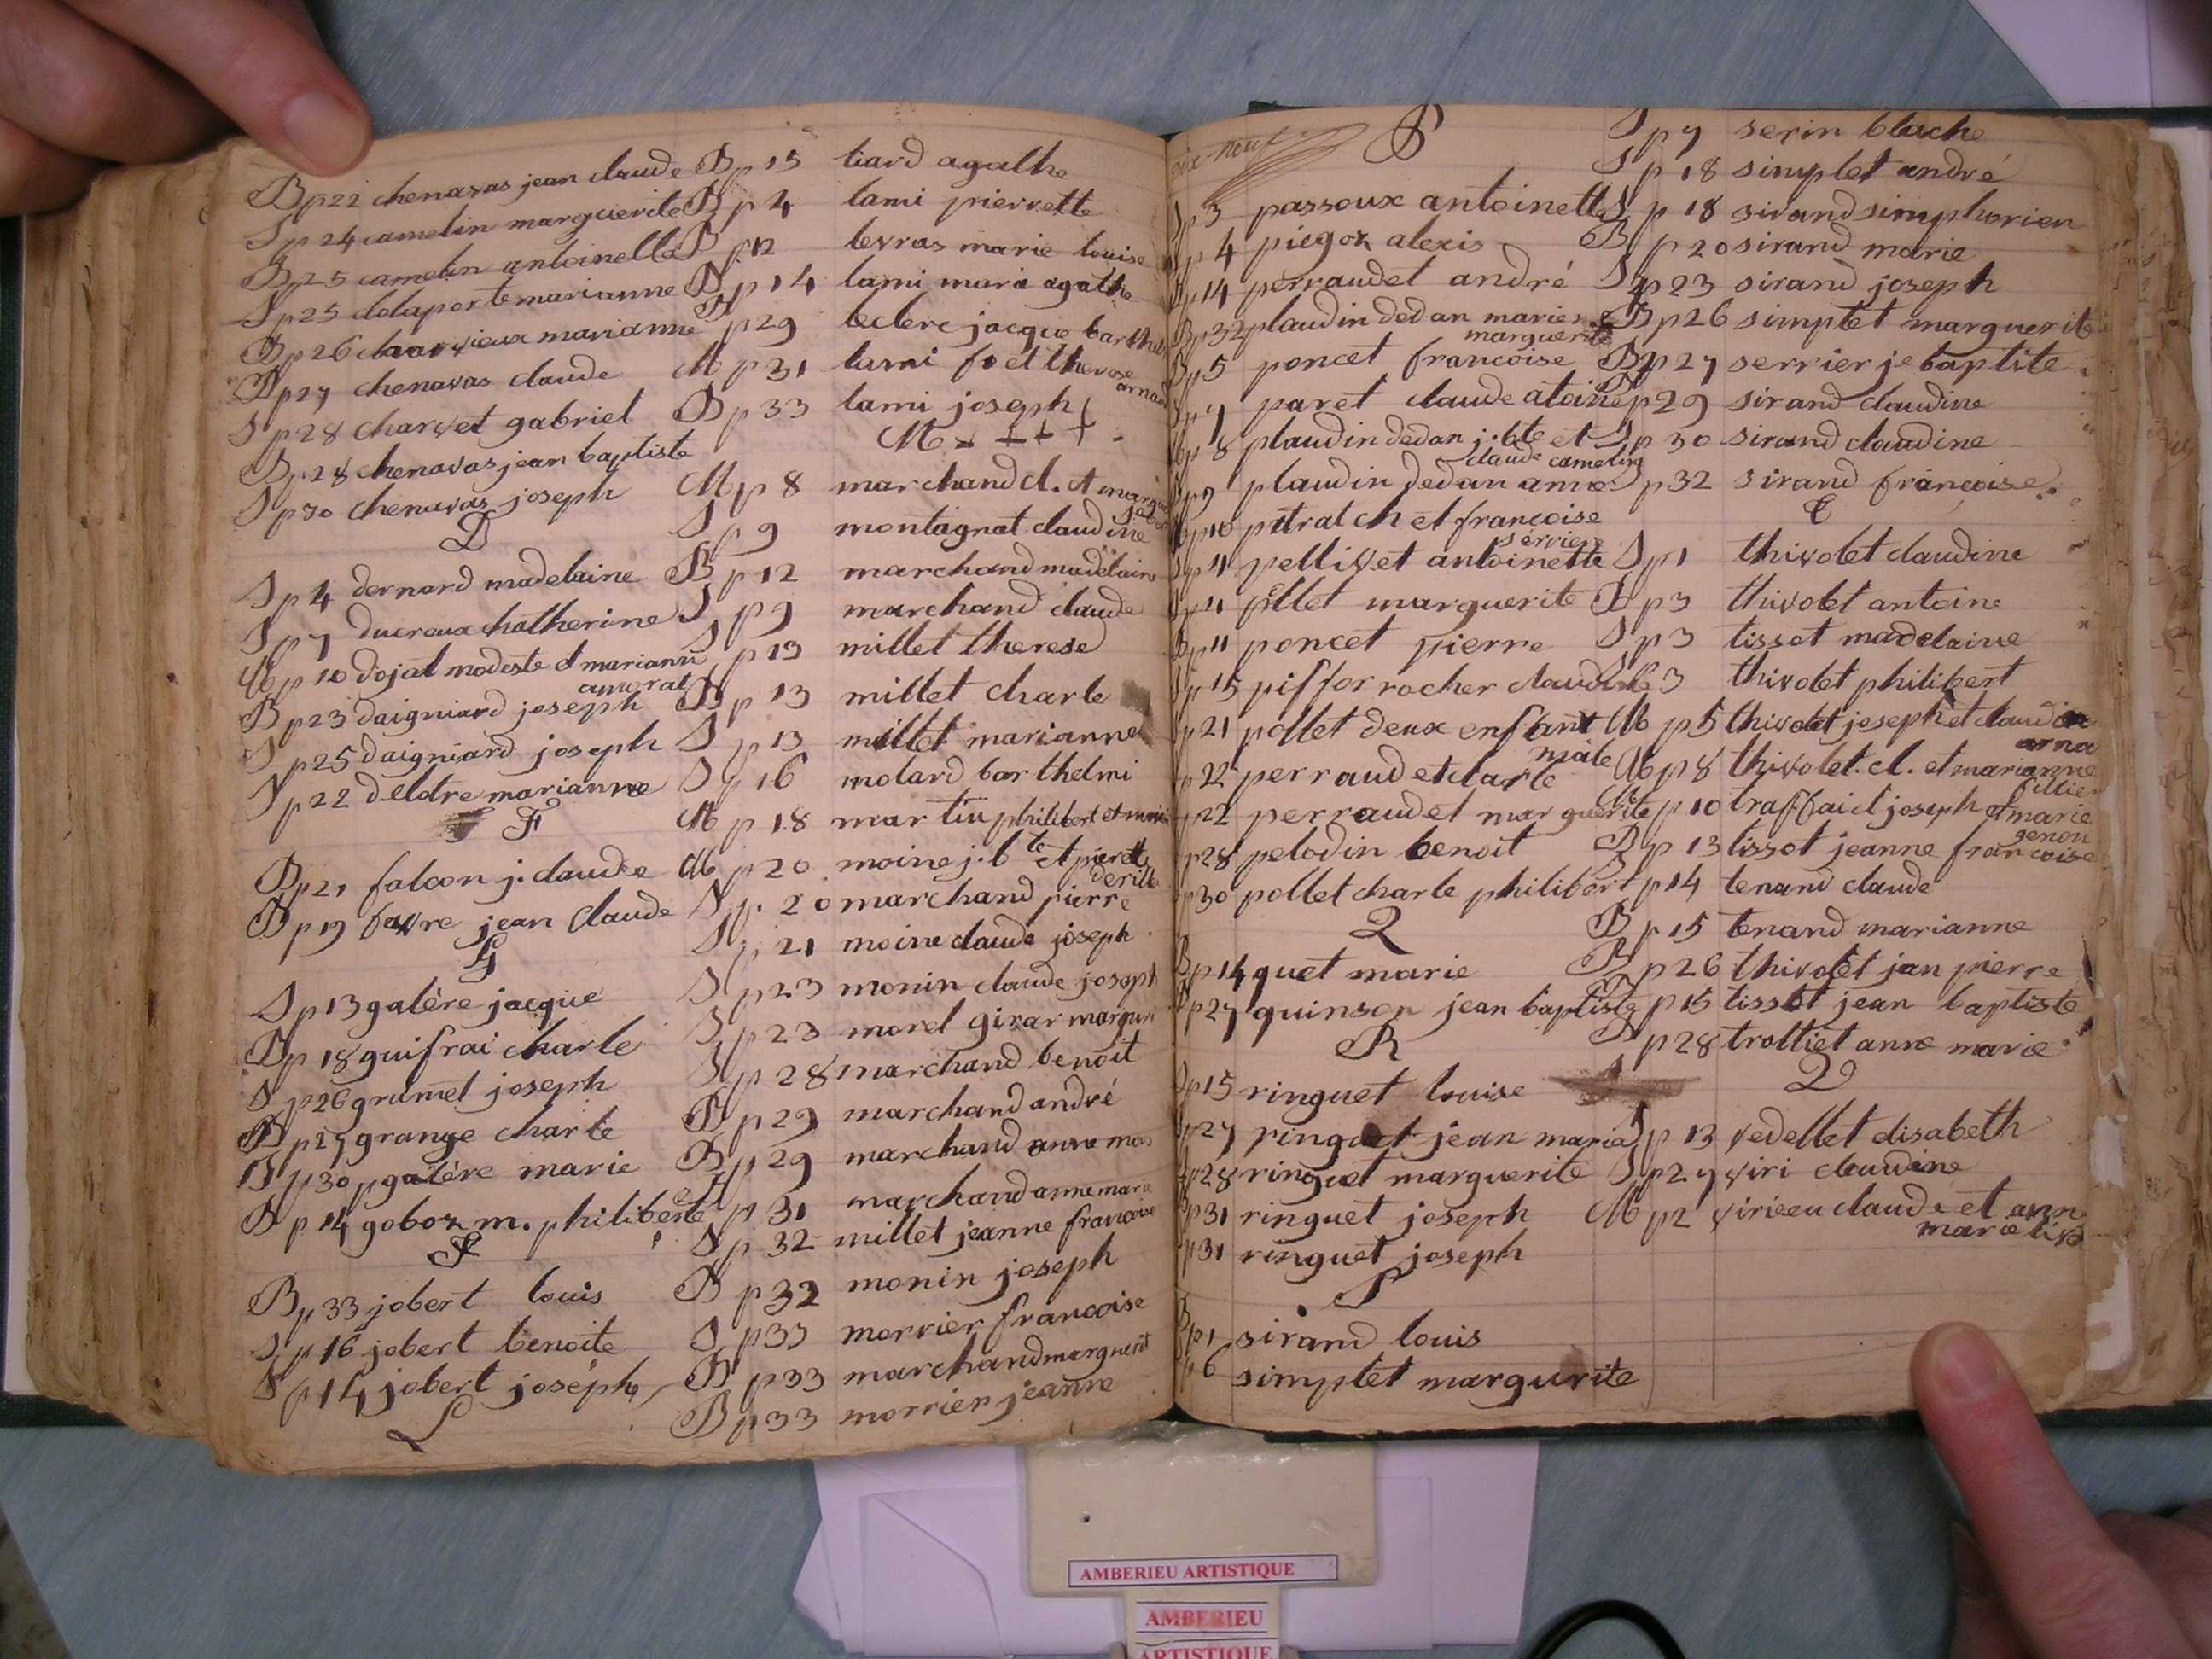 Bp22 chenavas jean claude
Sp24 camelin marguerite
Bp25 camelin antoinette
Sp25 dolaporte marianne
Bp26 charvieux marianne
Bp27 chenavas claude
Sp28 charvet gabriel
Bp28 chenavas jean baptiste
Sp30 chenavas joseph
D
Sp4 dernard madelaine
Sp7 ducroux chatherine
Mp10 dojat modeste et mariann
amorat
Bp23 daigniard joseph
Sp25 daigniard joseph
Sp22 deldtre marianne
F
Bp21 falcon j. claude
Bp19 favre jean claude
G
Sp13 galère jacque
Bp18 guifrai charle
Sp26 grumet joseph
Bp27 grange charle
Bp30 galère marie
Bp14 goboz m. philiberte
J
Bp33 jobert louis
Sp16 jobert benoite
Sp14 jobert joseph
L
Bp15 liard agathe
Bp4 lami pierrette
Bp12 levras marie louise
Bp14 lami marie agathe
Bp29 leclerc jacque barthel
Mp31 lami fo et therese
arnau
Bp33 lami joseph
M
Mp8 marchand cl. et margu
Sp9 montagnat claudine
Bp12 marchand madelaine
Sp9 marchand claude
Sp13 millet therese
Bp13 millet charle
Sp13 millet marianne
Sp16 molard barthelmi
Mp18 martin philibert et marie
Mp20 moine j. bte et pierette
derill
Sp20 marchand pierre
Sp21 moine claude joseph
Sp23 monin claude joseph
Sp23 morel girar margueri
Sp28 marchand benoit
Bp29 marchand andré
Bp29 marchand anne mar
Sp31 marchand anne marie
Sp32 millet jeanne francoise
Bp32 monin joseph
Sp33 morrier francoise
Bp33 marchand marguerit
Bp33 morrier jeanne
dix neuf
P
Sp3 passoux antoinette
p4 piegoz alexis
p14 perraudet andré
Bp32 plaudin dedan marie
marguerite
Bp5 poncet francoise
p7 paret claude atoine
Mp8 plaudin dedan j. bte et
claude camelin
Bp9 plaudin dedan anne
Mp10 pitrat ch et francoise
serriere
Sp11 pellivet antoinette
Sp11 pillet marguerite
Bp11 poncet pierre
Sp15 piffor rocher claudine
p21 pollet deux enfant
male
p22 perraudet charle
p22 perraudet marguerite
p28 pelodin benoit
p30 pollet charle philibert
Q
Bp14 quet marie
p27 quinson jean baptiste
R
Sp15 ringuet louise
p27 ringuet jean marie
p28 ringuet marguerite
p31 ringuet joseph
p31 ringuet joseph
S
Bp1 sirand louis
p6 simplet margurite
Sp7 serin blache
Sp18 simplet andré
Sp18 sirand simphorien
Bp20 sirand marie
Sp23 sirand joseph
Bp26 simplet marguerite
Bp27 serrier je baptiste
Bp29 sirand claudine
Sp30 sirand claudine
Sp32 sirand françoise
T
Sp1 thivolet claudine
Bp3 thivolet antoine
Sp3 tissot madelaine
Sp3 thivolet philibert
Mp5 thivolet joseph et claudine
arna
Mp8 thivolet. cl. et marianne
fillier
Mp10 traffai et joseph et marie
genon
Bp13 tissot jeanne francoise
Sp14 tenand claude
Bp15 tenand marianne
Bp26 thivolet jan pierre
Bp15 tissot jean baptiste
Sp28 trolliet anne marie
Sp13 vedellet elisabeth
Sp27 viri claudine
Mp2 virieu claude et ann
marie
AMBERIEU ARTISTIQUE
AMBERIEU
ARTISTIQUE